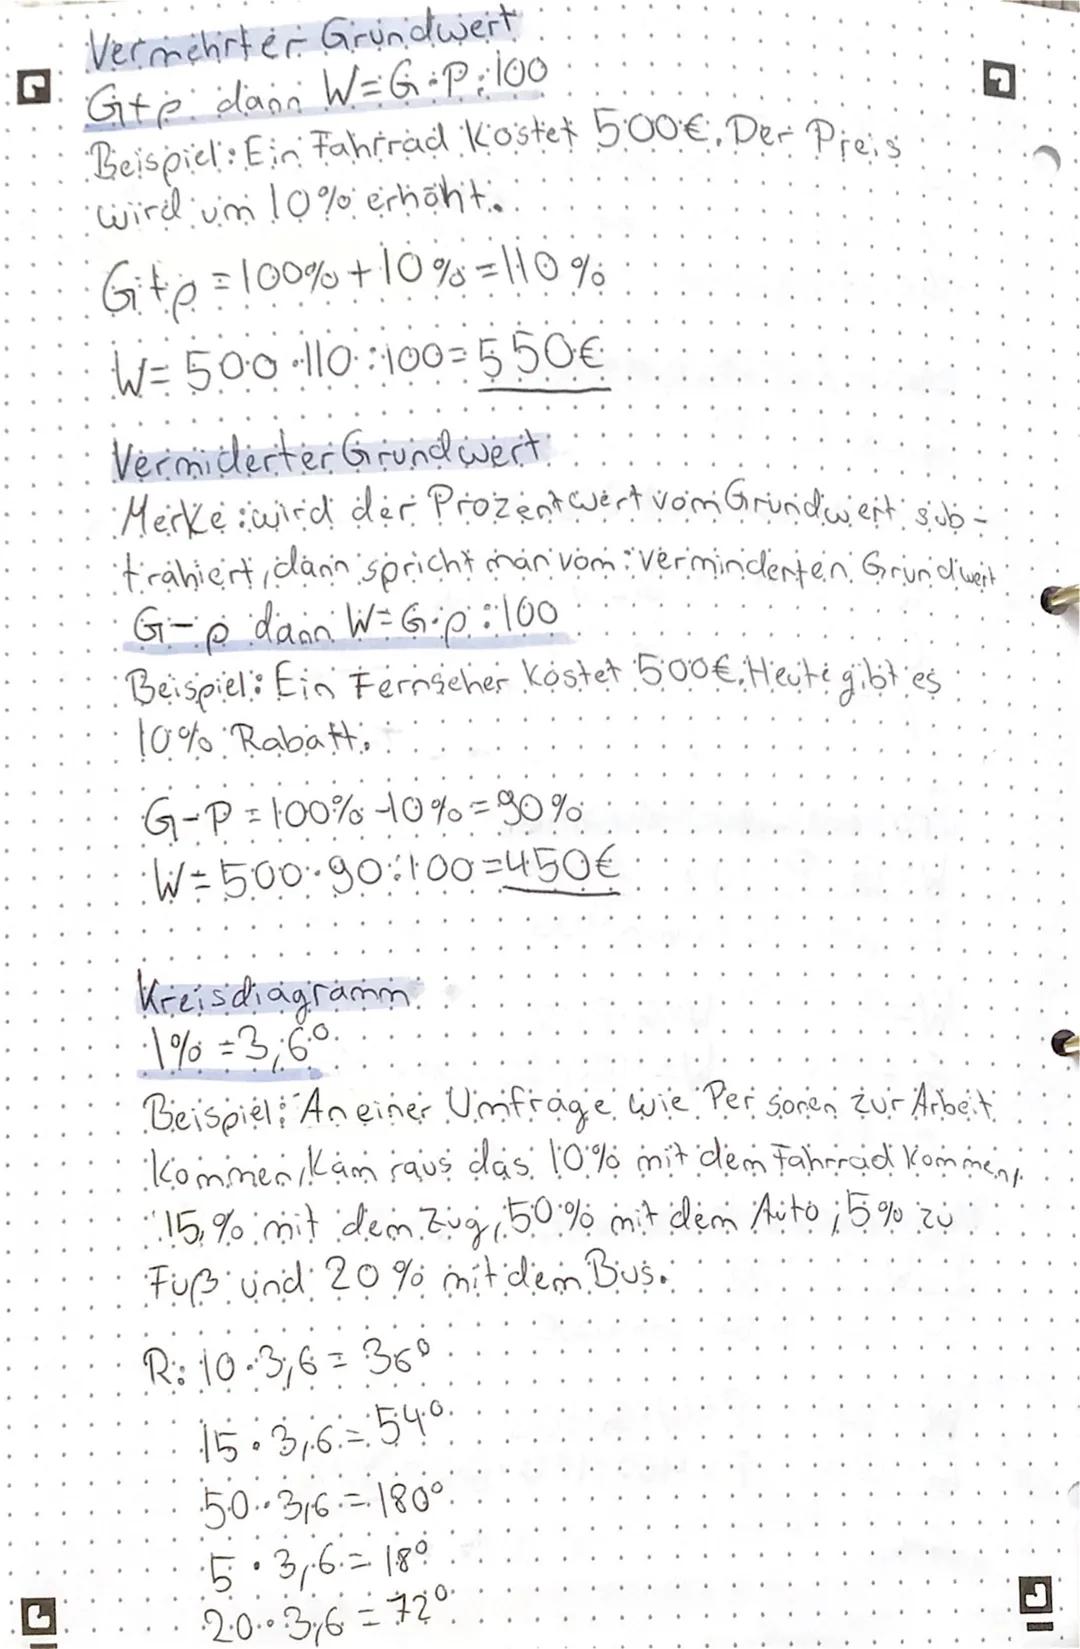 Vermehrter Grundwert
G+p dann W=G·P:100
Beispiel: Ein Fahrrad Kostet 500€. Der Preis
wird um 10% erhöht.
G+p = 100% + 10% = 110%
W= 500 · 110 : 100 = 550€
Vermiderter Grundwert
Merke: wird der Prozentwert vom Grundwert sub-
trahiert, dann spricht man vom: verminderten Grundwert
G-p dann W=G·p:100
Beispiel: Ein Fernseher Kostet 500€. Heute gibt es
10% Rabatt.
G-P = 100% -10% = 90%
W= 500 · 90 : 100 = 450€
Kreisdiagramm
1% = 3,6°
Beispiel: An einer Umfrage wie Personen zur Arbeit
Kommen, Kam raus das 10% mit dem Fahrrad Kommen,
15% mit dem Zug, 50% mit dem Auto, 5% zu
Fuß und 20% mit dem Bus.
R: 10 · 3,6 = 36°
15 · 3,6 = 54°
50 · 3,6 = 180°
5 · 3,6 = 18°
20 · 3,6 = 72°